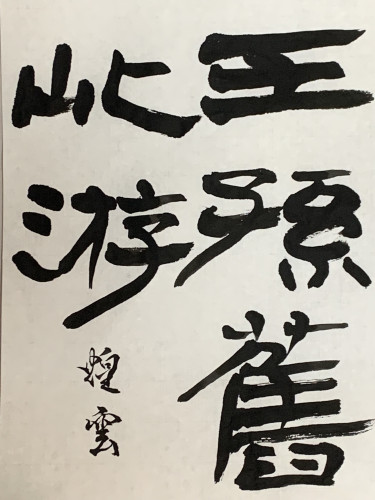 王孫舊
此游
煌雲